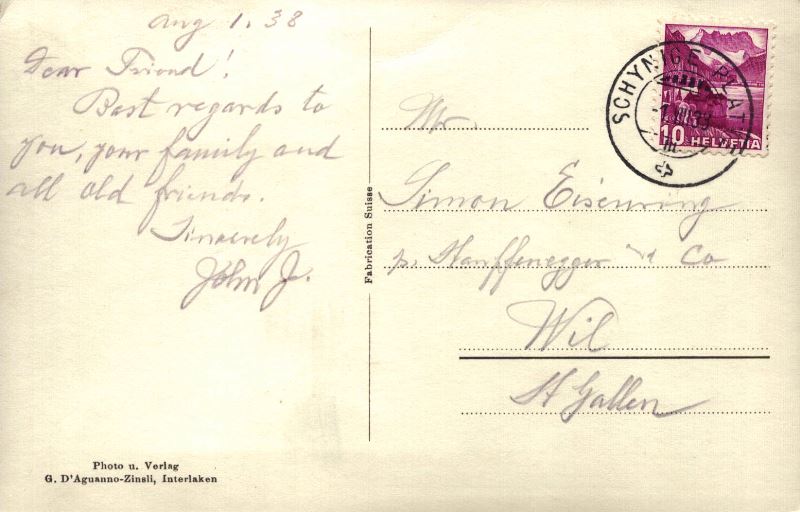 Aug 1. 38
Dear Friend!
Best regards to
you, your family and
all old friends.
Sincerely
John J.
Photo u. Verlag
G. D'Aguanno-Zinsli, Interlaken
Fabrication Suisse
SCHYNIGE PLAT
10 HELVETIA
Mr.
Simon Eisenring
p. & Co
Wil
St Gallen